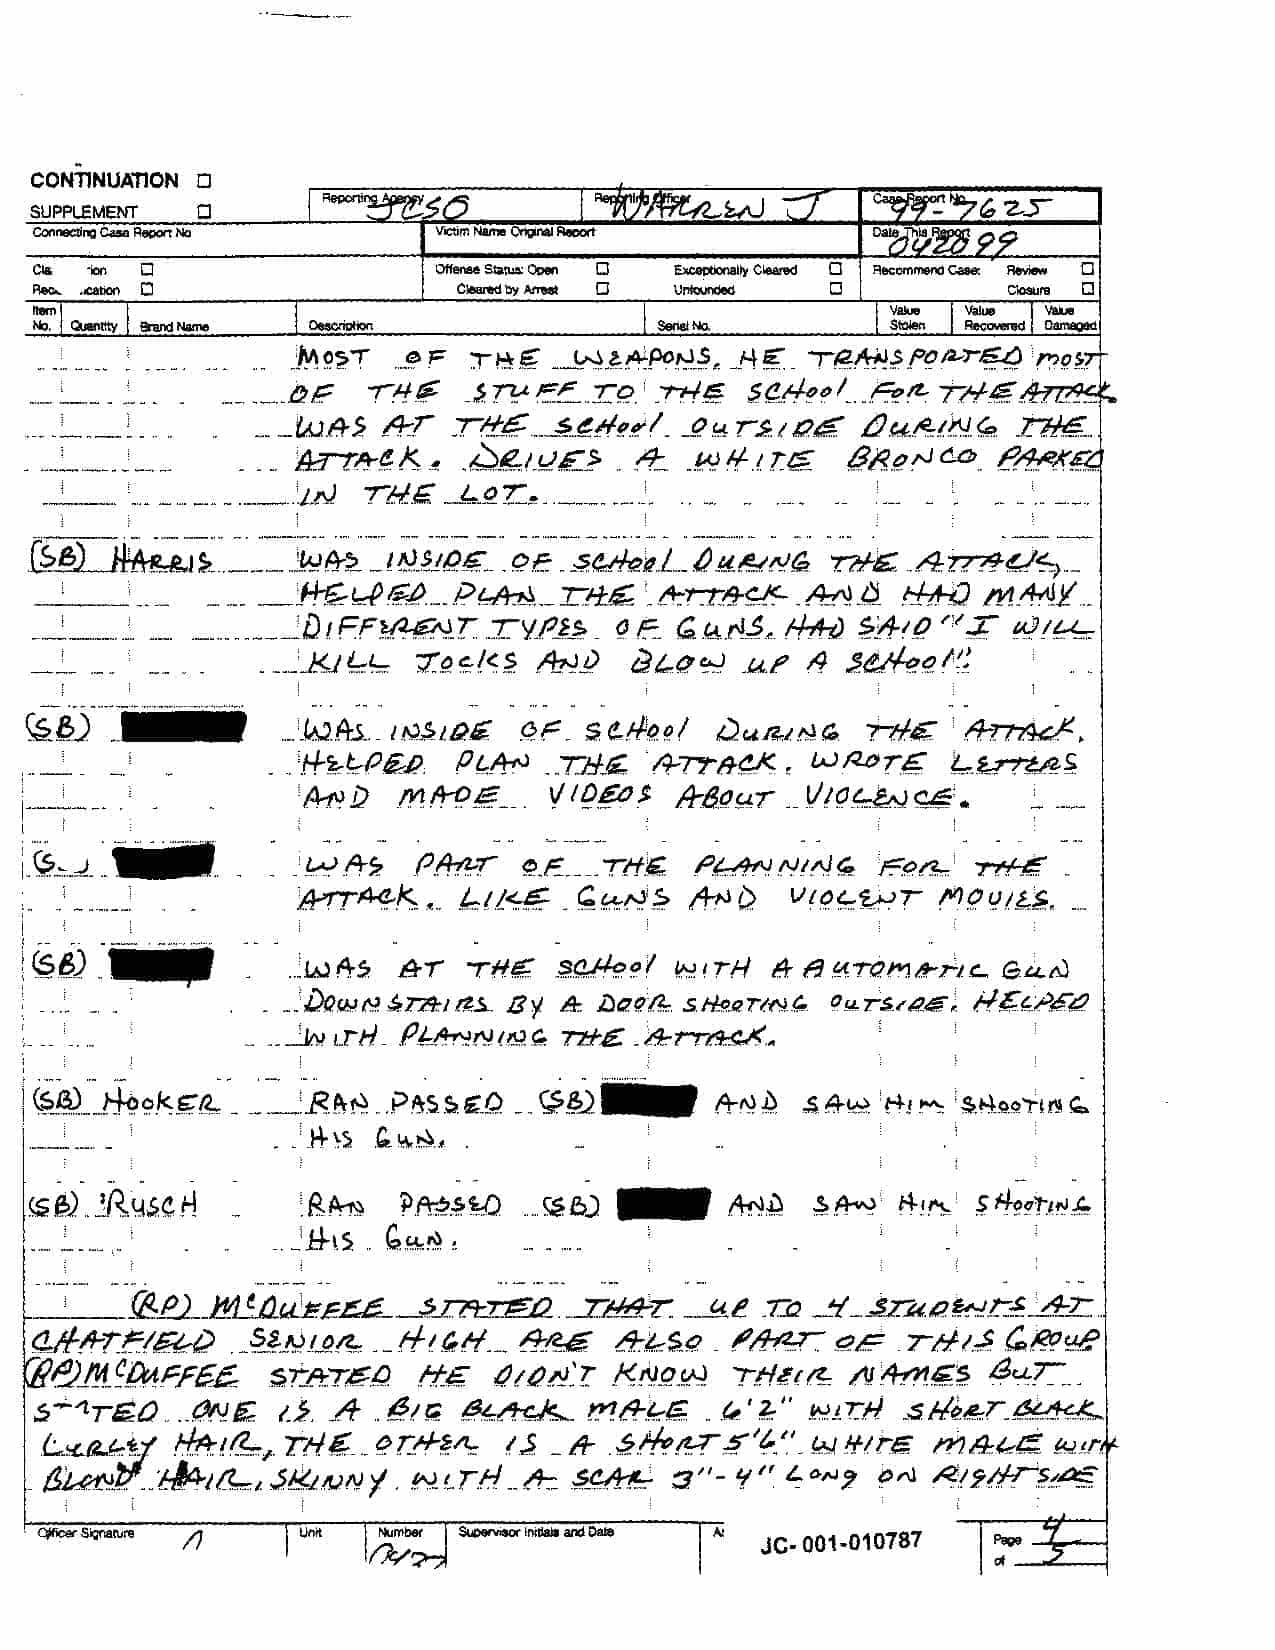 CONTINUATION ☐
SUPPLEMENT ☐
Reporting Agency JCSO Reporting Officer WALREN J Case Report No. 99-7625
Connecting Case Report No Victim Name Original Report Date This Report 042099
Cla ion ☐ Offense Status: Open ☐ Exceptionally Cleared ☐ Recommend Case: Review ☐
Rec ication ☐ Cleared by Arrest ☐ Unfounded ☐ Closure ☐
Item No. Quantity Brand Name Description Serial No. Value Stolen Value Recovered Value Damaged
MOST OF THE WEAPONS. HE TRANSPORTED MOST
OF THE STUFF TO THE SCHOOL FOR THE ATTACK
WAS AT THE SCHOOL OUTSIDE DURING THE
ATTACK. DRIVES A WHITE BRONCO PARKED
IN THE LOT.
(SB) HARRIS WAS INSIDE OF SCHOOL DURING THE ATTACK,
HELPED PLAN THE ATTACK AND HAD MANY
DIFFERENT TYPES OF GUNS. HAD SAID "I WILL
KILL JOCKS AND BLOW UP A SCHOOL".
(SB) WAS INSIDE OF SCHOOL DURING THE ATTACK.
HELPED PLAN THE ATTACK. WROTE LETTERS
AND MADE VIDEOS ABOUT VIOLENCE.
(S WAS PART OF THE PLANNING FOR THE
ATTACK. LIKE GUNS AND VIOLENT MOVIES.
(SB) WAS AT THE SCHOOL WITH A AUTOMATIC GUN
DOWNSTAIRS BY A DOOR SHOOTING OUTSIDE. HELPED
WITH PLANNING THE ATTACK.
(SB) HOOKER RAN PASSED (SB) AND SAW HIM SHOOTING
HIS GUN.
(SB) RUSCH RAN PASSED (SB) AND SAW HIM SHOOTING
HIS GUN.
(RP) McDUFFEE STATED THAT UP TO 4 STUDENTS AT
CHATFIELD SENIOR HIGH ARE ALSO PART OF THIS GROUP
(RP) McDUFFEE STATED HE DIDN'T KNOW THEIR NAMES BUT
STATED ONE IS A BIG BLACK MALE 6'2" WITH SHORT BLACK
CURLEY HAIR, THE OTHER IS A SHORT 5'6" WHITE MALE WITH
BLOND HAIR, SKINNY WITH A SCAR 3"-4" LONG ON RIGHT SIDE
Officer Signature Unit Number Supervisor Initials and Date A JC-001-010787 Page 4
of 5